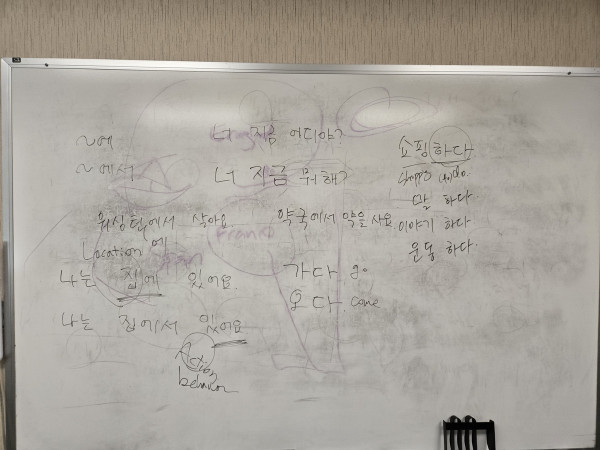 ~에
~에서
너 지금 어디야?
너 지금 뭐해?
쇼핑 하다
말 하다
이야기 하다
운동 하다
워싱턴에서 살아요
약국에서 약을 사요
Location 에
나는 집에 있어요
가다 go
오다 come
나는 집에서 있어요
Action
behavior